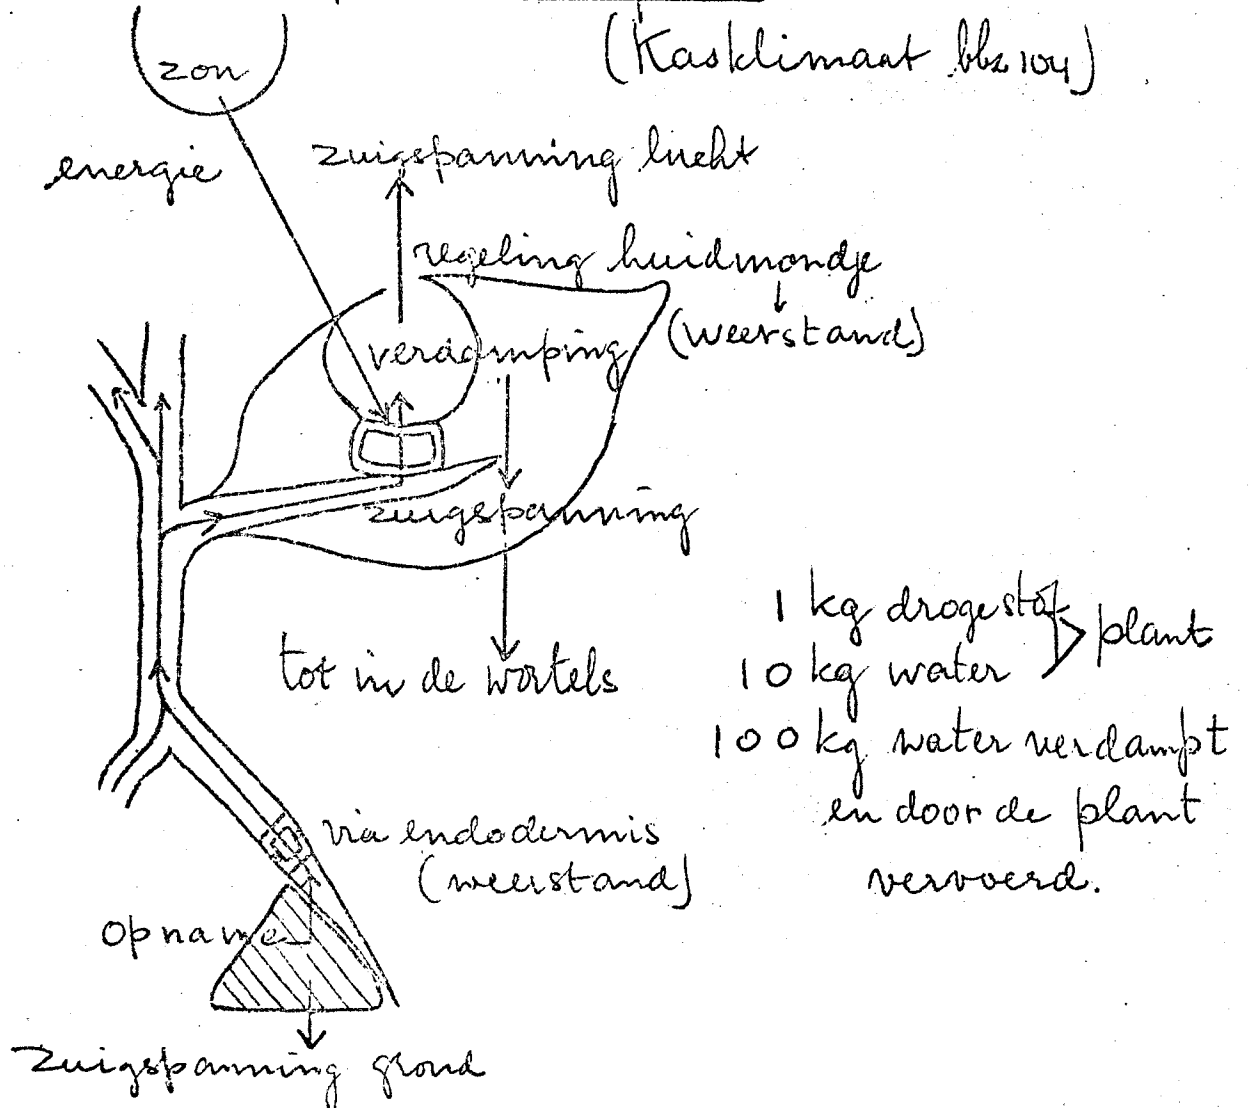 (Kasklimaat blz 104)
zon
energie
zuigspanning lucht
regeling huidmondje
(weerstand)
verdamping
zuigspanning
tot in de wortels
1 kg drogestof
10 kg water
plant
100 kg water verdampt
en door de plant
vervoerd.
via endodermis
(weerstand)
opname
zuigspanning grond